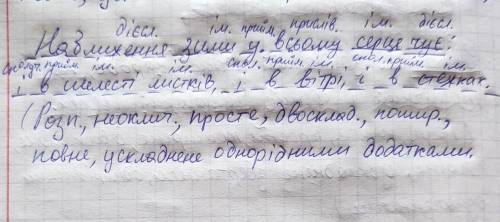 дієсл. ім. прийм. прислів. ім. дієсл.
Наближення зими у всьому серце чує:
сполуч. прийм. ім. ім. спол. прийм. ім. спол. прийм. ім.
і в шелесті листків, і в вітрі, і в стежках.
(Розп., неоклич., просте, двосклад., пошир.,
повне, ускладнене однорідними додатками.